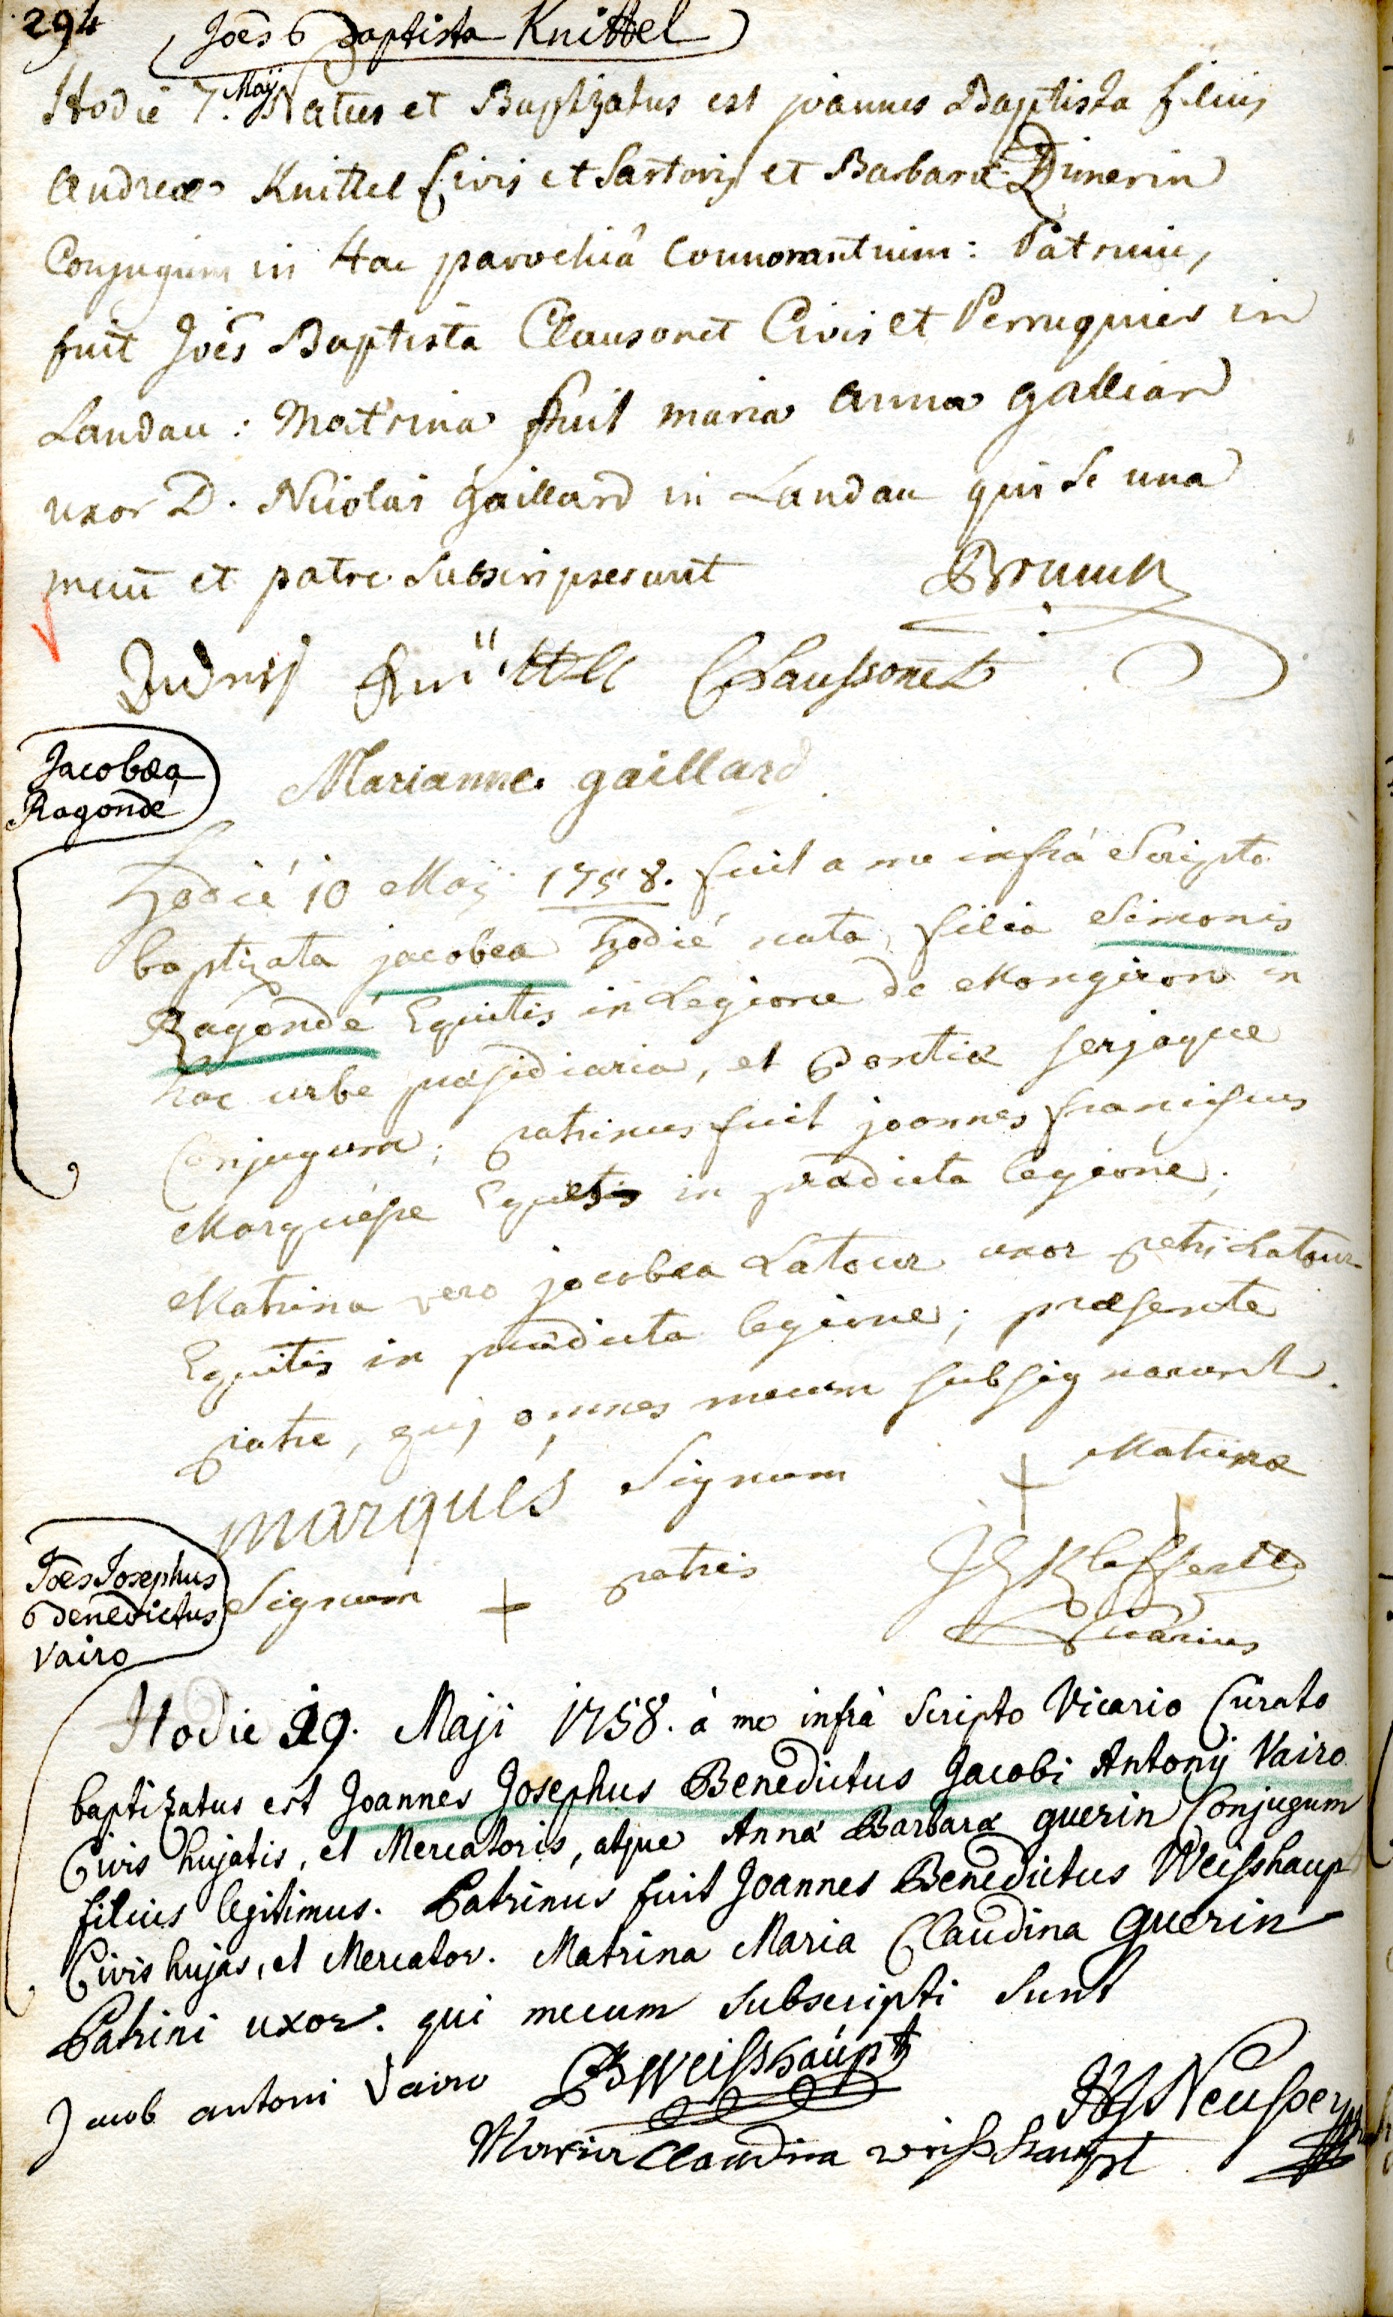 294
Joês Baptista Knittel
Hodie 7. Maÿ Natus et Baptizatus est joannes Baptista filius
Andreæ Knittel Civis et Sartoris et Barbaræ Dimerin
Conjugum in Hac parochiâ Commorantium: Patrinus
fuit Joês Baptista Clausonet Civis et Perruquier in
Landau: Matrina fuit maria anna galliard
uxor D. Nicolai Gaillard in Landau qui se una
mecum et patre subscripserunt
Knittel Chaussonet
Jacobæa
Ragondé
Marianne gaillard
Hodié 10 Maÿ 1758. fuit a me infrà Scripto
baptizata jacobea hodié nata, filia Simonis
Ragondé Equitis in Legione de Mongiron in
hac urbe præsidiaria, et Pontiæ serjaque
Conjugum; patrinus fuit joannes franciscus
Marquésse Equitis in prædicta legione;
Matrina vero jacobea Latour uxor petri Latour
Equitis in prædicta legione; præsente
patre, qui omnes mecum subsignarunt.
marqués Signum + Matrinæ
Joês Josephus
Benedictus
Vairo
Signum + patris
Vicarius
Hodie 19. Maji 1758. à me infrà Scripto Vicario Curato
baptizatus est Joannes Josephus Benedictus Jacobi Antonÿ Vairo
Civis hujatis, et Mercatoris, atque Annæ Barbaræ guerin Conjugum
filius legitimus. Patrinus fuit Joannes Benedictus Weisshaup
Civis hujas, et Mercator. Matrina Maria Claudina Guerin
Patrini uxor. qui mecum subscripti sunt
Jacob antoni Vairo JBWeisshaupt
Maria Claudina weisshaupt